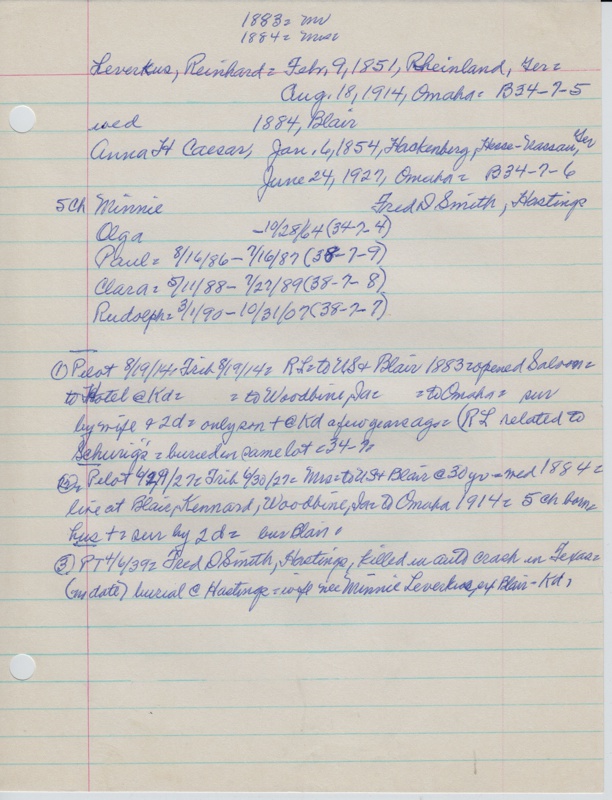 1883 = mr
1884 = mrs
Leverkus, Reinhard = Feb. 9, 1851, Rheinland, Ger =
Aug. 18, 1914, Omaha = B34-7-5
wed 1884, Blair
Anna H Caesar, Jan. 6, 1854, Hackenberg, Hesse-Nassau, Ger
June 24, 1927, Omaha = B34-7-6
5 Ch Minnie Fred D Smith, Hastings
Olga -10/28/64 (34-7-4)
Paul = 8/16/86 - 7/16/87 (38-7-9)
Clara = 5/11/88 - 7/27/89 (38-7-8)
Rudolph = 3/1/90 - 10/31/07 (38-7-7)
① Pilot 8/19/14, Trib 8/19/14 = RL = to US & Blair 1883 = opened Saloon =
to Hotel @ Kd = = to Woodbine, Ia = to Omaha = sur
by wife & 2d = only son + @ Kd a few years ago = (RL related to
= buried on same lot = 34-7)
② Pilot 6/29/27 = Trib 6/30/27 = Mrs = to US & Blair @ 30 yr = wed 1884 =
live at Blair, Kennard, Woodbine, Ia = to Omaha 1914 = 5 ch born =
hus + = sur by 2d = bur Blair =
③ PT 4/6/39 = Fred D Smith, Hastings, killed in auto crash in Texas =
(no date) burial @ Hastings = wife nee Minnie Leverkus, of Blair - Kd,